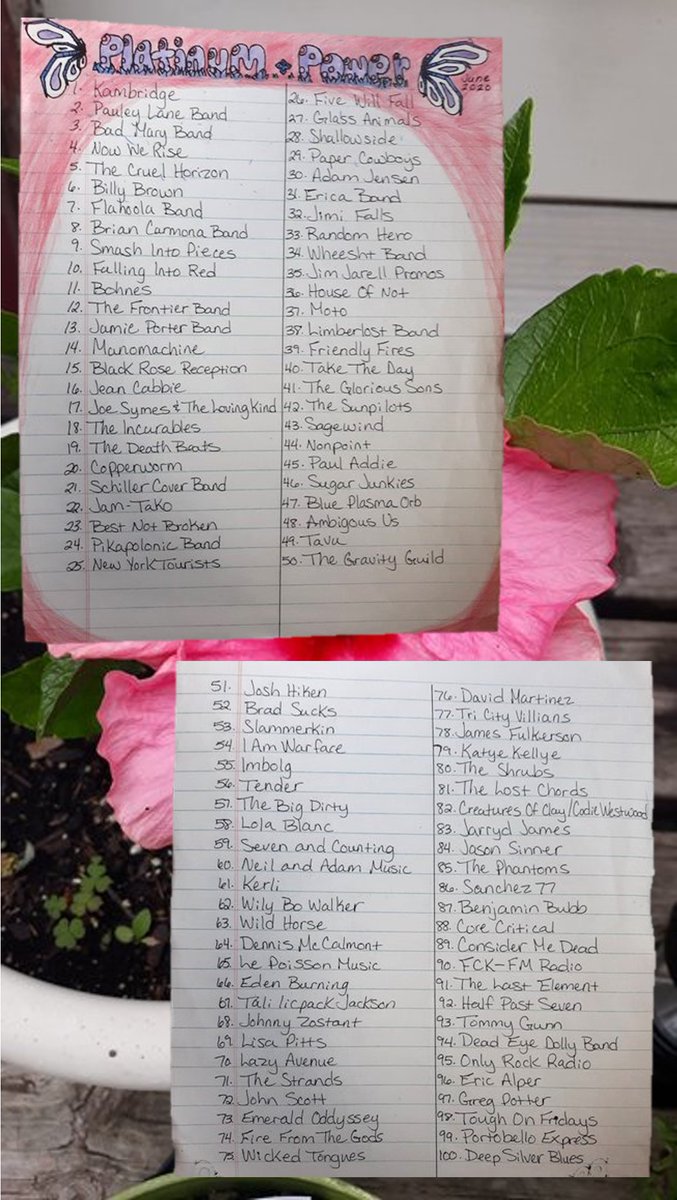 Platinum + Power
June
2020
1. Kambridge
2. Pauley Lane Band
3. Bad Mary Band
4. Now We Rise
5. The Cruel Horizon
6. Billy Brown
7. Flahoola Band
8. Brian Carmona Band
9. Smash Into Pieces
10. Falling Into Red
11. Bohnes
12. The Frontier Band
13. Jamie Porter Band
14. Manomachine
15. Black Rose Reception
16. Jean Cabbie
17. Joe Symes & The Loving Kind
18. The Incurables
19. The Death Beats
20. Copperworm
21. Schiller Cover Band
22. Jam-Tako
23. Best Not Broken
24. Pikapolonic Band
25. New York Tourists
26. Five Will Fall
27. Glass Animals
28. Shallowside
29. Paper Cowboys
30. Adam Jensen
31. Erica Band
32. Jimi Falls
33. Random Hero
34. Wheesht Band
35. Jim Jarell Promos
36. House Of Not
37. Moto
38. Limberlost Band
39. Friendly Fires
40. Take The Day
41. The Glorious Sons
42. The Sunpilots
43. Sagewind
44. Nonpoint
45. Paul Addie
46. Sugar Junkies
47. Blue Plasma Orb
48. Ambigous Us
49. Tavu
50. The Gravity Guild
51. Josh Hiken
52. Brad Sucks
53. Slammerkin
54. I Am Warface
55. Imbolg
56. Tender
57. The Big Dirty
58. Lola Blanc
59. Seven and Counting
60. Neil and Adam Music
61. Kerli
62. Wily Bo Walker
63. Wild Horse
64. Dennis McCalmont
65. Le Poisson Music
66. Eden Burning
67. Tali licpack Jackson
68. Johnny Zostant
69. Lisa Pitts
70. Lazy Avenue
71. The Strands
72. John Scott
73. Emerald Oddyssey
74. Fire From The Gods
75. Wicked Tongues
76. David Martinez
77. Tri City Villians
78. James Fulkerson
79. Katye Kellye
80. The Shrubs
81. The Lost Chords
82. Creatures Of Clay/Codie Westwood
83. Jarryd James
84. Jason Sinner
85. The Phantoms
86. Sanchez 77
87. Benjamin Bubb
88. Core Critical
89. Consider Me Dead
90. FCK-FM Radio
91. The Last Element
92. Half Past Seven
93. Tommy Gunn
94. Dead Eye Dolly Band
95. Only Rock Radio
96. Eric Alper
97. Greg Potter
98. Tough On Fridays
99. Portobello Express
100. Deep Silver Blues